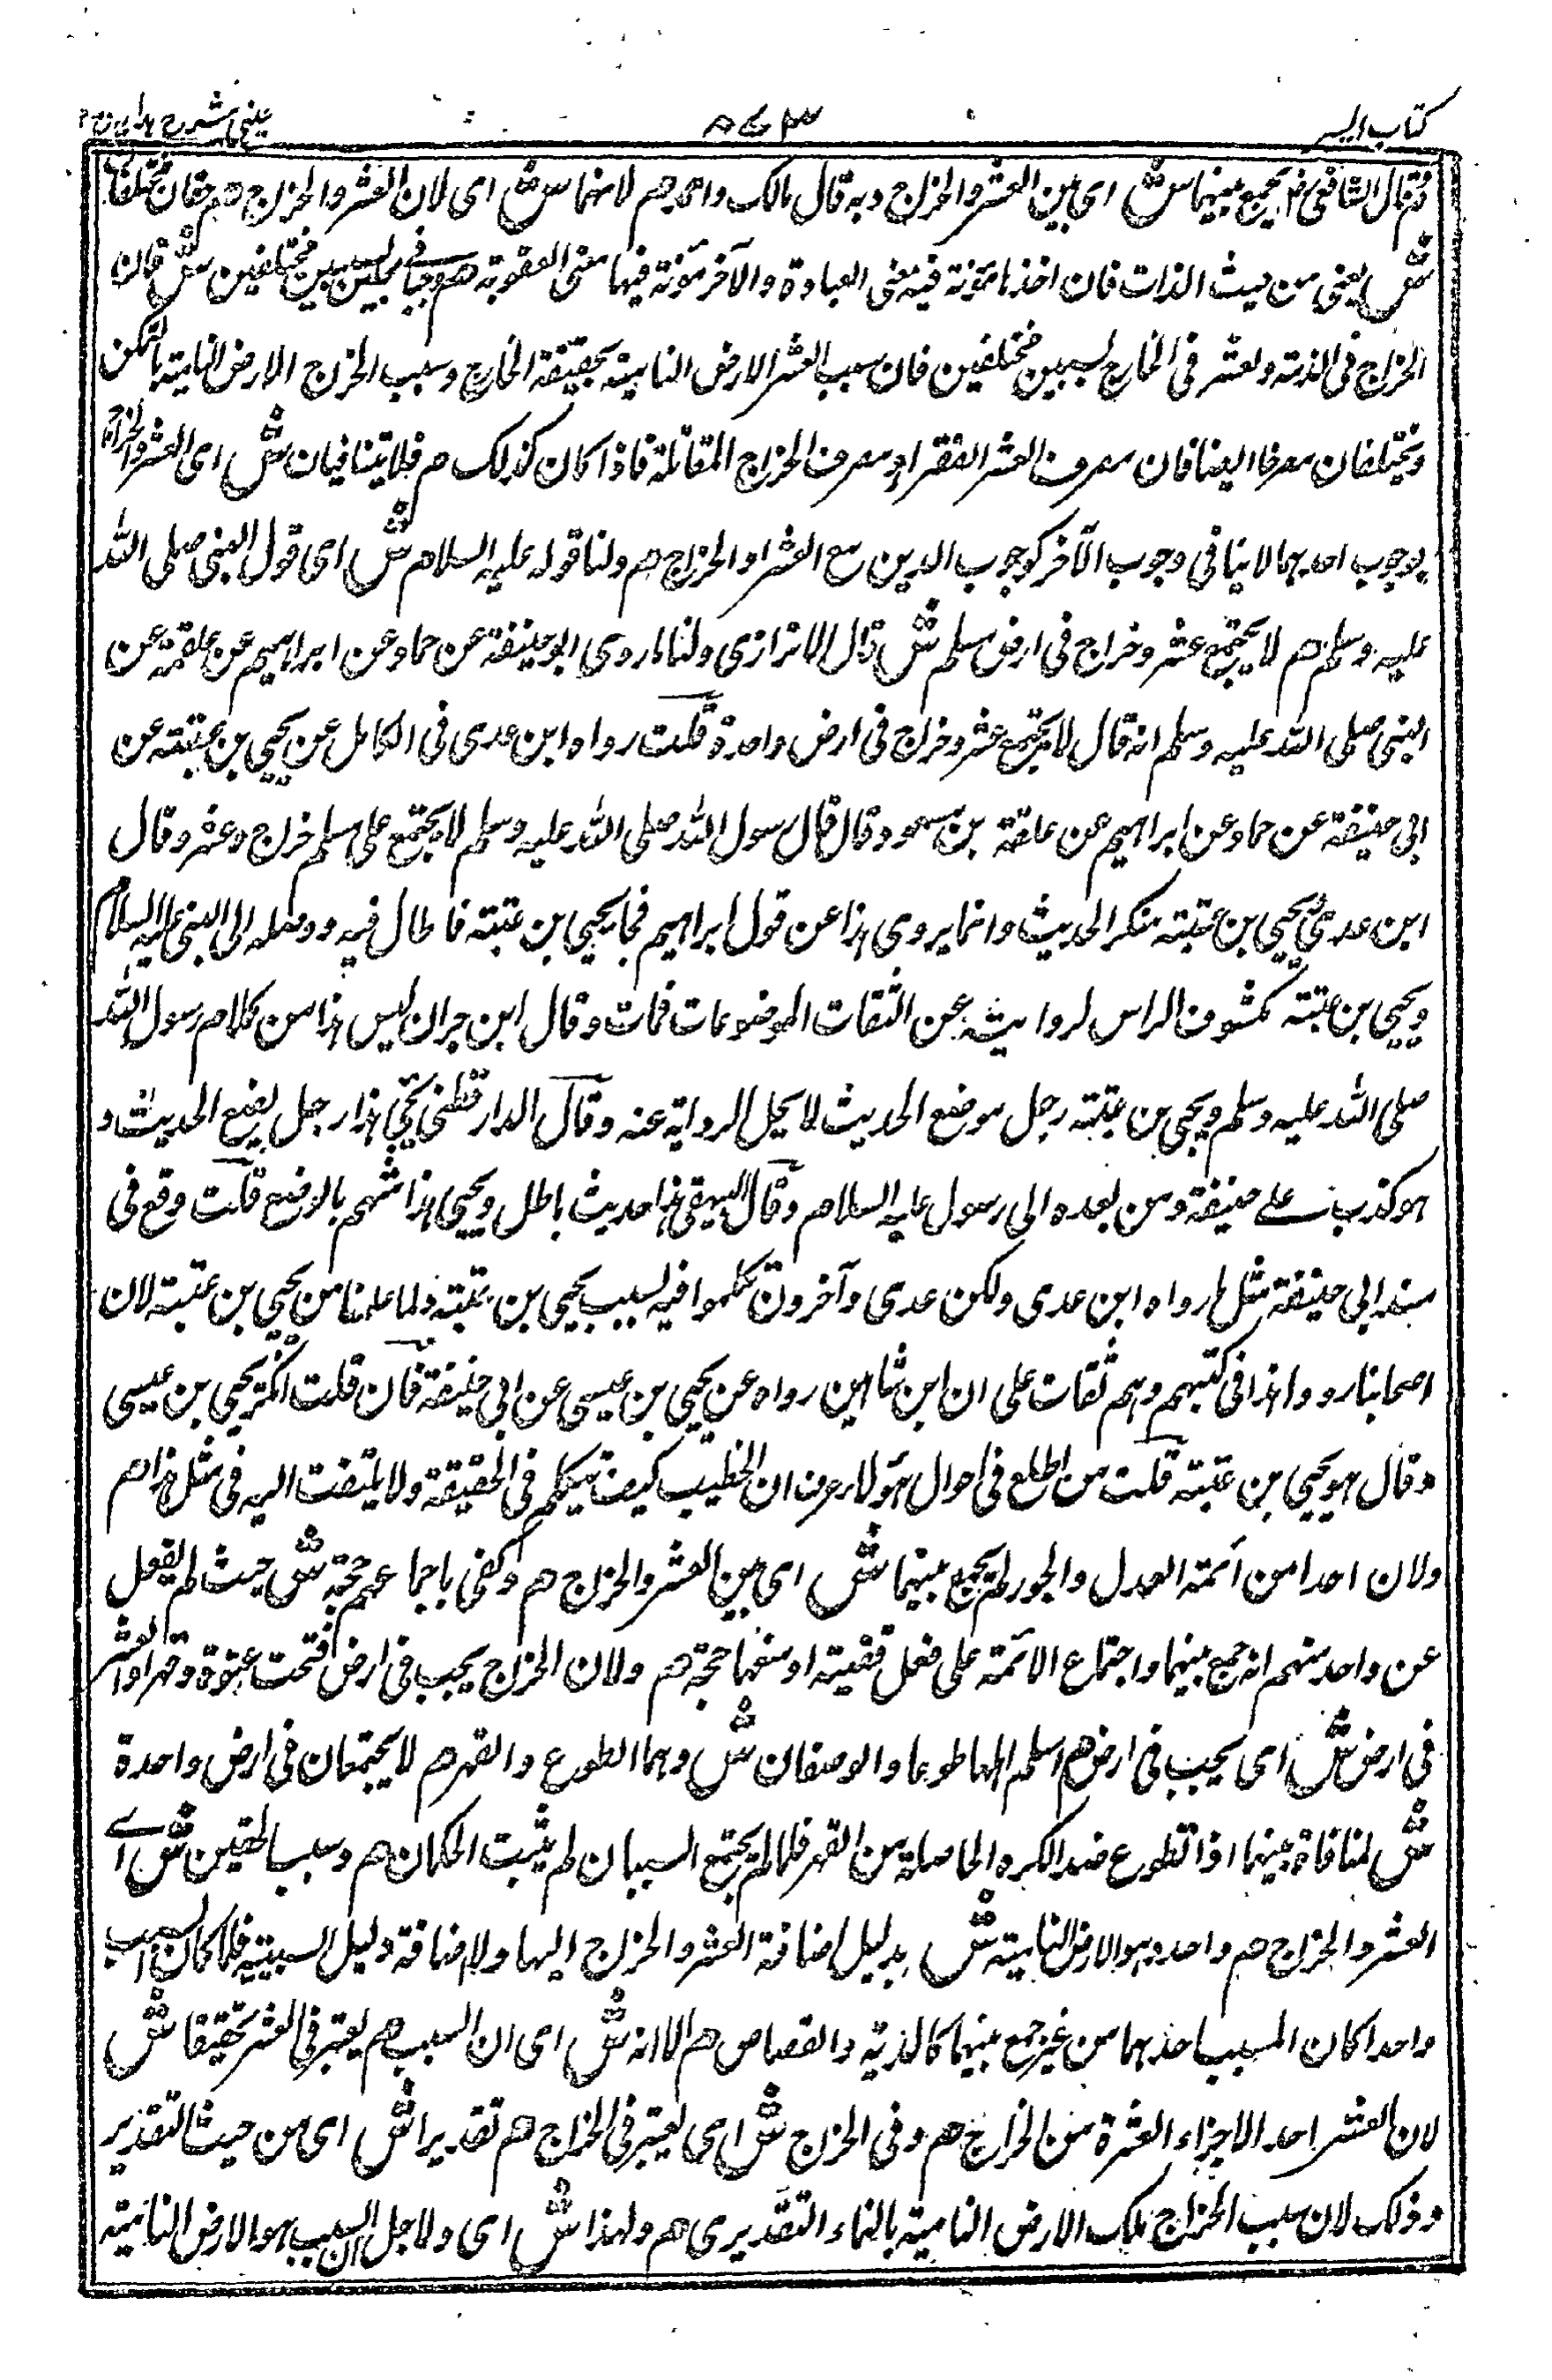 كتاب السير ٨٤٣ عينى شرح هدايه ج ٢
وقال الشافعى رح يجمع بينهما ش اى بين العشر والخراج وبه قال مالك واحمد هم لانهما ش اى لان العشر والخراج هم حقان مختلفان
ش يعنى من حيث الذات فان احدهما مؤنة فيه معنى العبادة والآخر مؤنة فيها معنى العقوبة هم وجبا فى محلين بسببين مختلفين ش فان
الخراج فى الذمة والعشر فى الخارج لسببين مختلفين فان سبب العشر الارض النامية بحقيقة الخارج وسبب الخراج الارض النامية بالتمكن
ويختلفان مصرفا ايضا فان مصرف العشر الفقراء ومصرف الخراج المقاتلة فاذا كان كذلك م فلا يتنافيان ش اى العشر والخراج
يوجوب احدهما لا ينافى وجوب الآخر كوجوب الدين مع العشر او الخراج م ولنا قوله عليه السلام ش اى قول النبى صلى الله
عليه وسلم هم لا يجتمع عشر وخراج فى ارض مسلم ش قال الاترازى ولنا ما روى ابو حنيفة عن حماد عن ابراهيم عن علقمة عن
النبى صلى الله عليه وسلم انه قال لا يجتمع عشر وخراج فى ارض واحدة قلت رواه ابن عدى فى الكامل عن يحيى بن عتبة عن
ابى حنيفة عن حماد عن ابراهيم عن علقمة بن مسعود قال قال رسول الله صلى الله عليه وسلم لا يجتمع على مسلم خراج وعشر وقال
ابن عدى يحيى بن عتبة منكر الحديث وانما يروى هذا عن قول ابراهيم فجا يحيى بن عتبة فاطال فيه ووصله الى النبى عليه السلام
ويحيى بن عتبة مكشوف الراس لروايته عن الثقات الموضوعات فمات وقال ابن حبان ليس هذا من كلام رسول الله
صلى الله عليه وسلم ويحيى بن عتبة رجل موضع الحديث لا يحل الرواية عنه وقال الدارقطنى يحيى هذا رجل يضع الحديث و
هو كذب على حنيفة ومن بعده الى رسول عليه السلام وقال البيهقى هذا حديث باطل ويحيى هذا متهم بالوضع قلت وقع فى
سند ابى حنيفة مثل ما رواه ابن عدى ولكن عدى وآخرون تكلموا فيه لسبب يحيى بن عتبة ولما علمنا من يحيى بن عتبة لان
اصحابنا رووا هذا فى كتبهم وهم ثقات على ان ابن شاهين رواه عن يحيى بن عيسى عن ابى حنيفة فان قلت انكر يحيى بن عيسى
وقال هو يحيى بن عتبة قلت من اطلع فى احوال هؤلاء عرف ان الخطيب كيف يتكلم فى الحقيقة ولا يلتفت اليه فى مثل هذا م
ولان احدا من ائمة العدل والجور لم يجمع بينهما ش اى بين العشر والخراج هم وكفى باجماعهم حجة ش حيث لم يفعل
عن واحد منهم انه جمع بينهما واجتماع الائمة على فعل قضية او منعها حجة هم ولان الخراج يجب فى ارض فتحت عنوة وقهرا والعشر
فى ارض ش اى يجب فى ارض هم اسلم اهلها طوعا والوصفان ش وهما الطوع والقهر م لا يجتمعان فى ارض واحدة
ش لمنافاة بينهما اذا التطوع ضد الكره الحاصلة من القهر فلما لم يجتمع السببان لم يثبت الحكمان هم وسبب الحقين ش اى
العشر والخراج هم واحد وهو الارض النامية ش بدليل اضافة العشر والخراج اليها والاضافة دليل السببية فلما كان السبب
واحدا كان المسبب احدهما من غير جمع بينهما كالدية والقصاص هم الا انه ش اى ان السبب هم يعتبر فى العشر تحقيقا ش
لان العشر احد الاجزاء العشرة من الخارج هم وفى الخراج ش اى يعتبر فى الخراج هم تقديرا ش اى من حيث التقدير
وذلك لان سبب الخراج ملك الارض النامية بالنماء التقديرى هم ولهذا ش اى ولاجل ان السبب هو الارض النامية